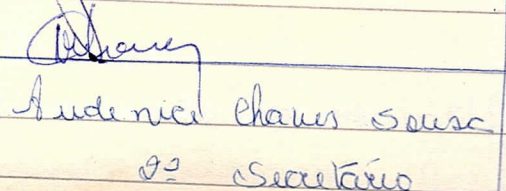 Audenice Chaves Sousa
2º Secretário